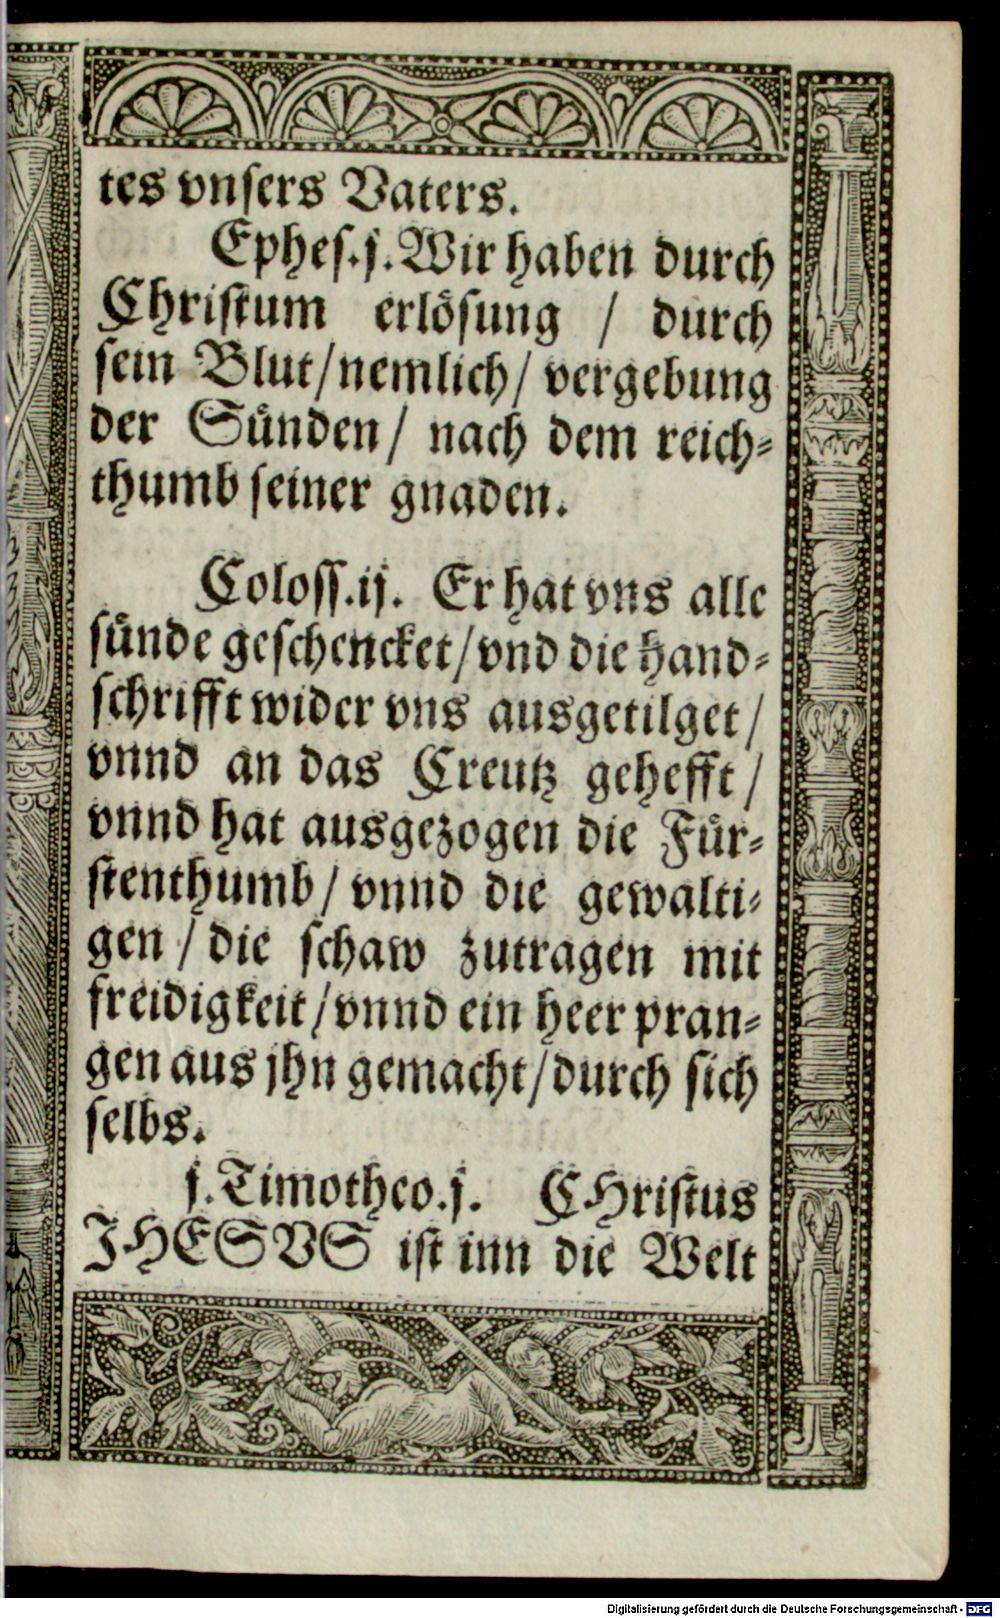 tes vnsers Vaters.
Ephes.j. Wir haben durch
Christum erlösung / durch
sein Blut / nemlich / vergebung
der Sünden / nach dem reich-
thumb seiner gnaden.
Coloss.ij. Er hat vns alle
sünde geschencket / vnd die hand-
schrifft wider vns ausgetilget /
vnnd an das Creutz gehefft /
vnnd hat ausgezogen die Für-
stenthumb / vnnd die gewalti-
gen / die schaw zutragen mit
freidigkeit / vnnd ein heer pran-
gen aus jhn gemacht / durch sich
selbs.
j. Timotheo.j. CHristus
JHESVS ist inn die Welt
Digitalisierung gefördert durch die Deutsche Forschungsgemeinschaft - DFG